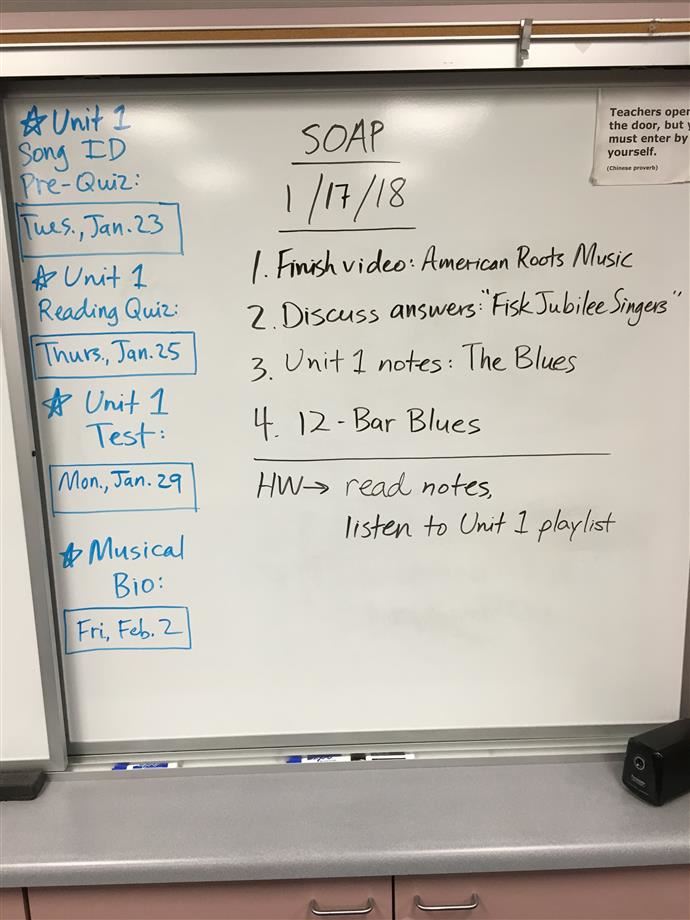 ☆ Unit 1
Song ID
Pre-Quiz:
Tues., Jan. 23
☆ Unit 1
Reading Quiz:
Thurs., Jan. 25
☆ Unit 1
Test:
Mon., Jan. 29
☆ Musical
Bio:
Fri, Feb. 2
SOAP
1/17/18
1. Finish video: American Roots Music
2. Discuss answers: "Fisk Jubilee Singers"
3. Unit 1 notes: The Blues
4. 12-Bar Blues
HW→ read notes,
listen to Unit 1 playlist
Teachers open
the door, but
must enter by
yourself.
(Chinese proverb)